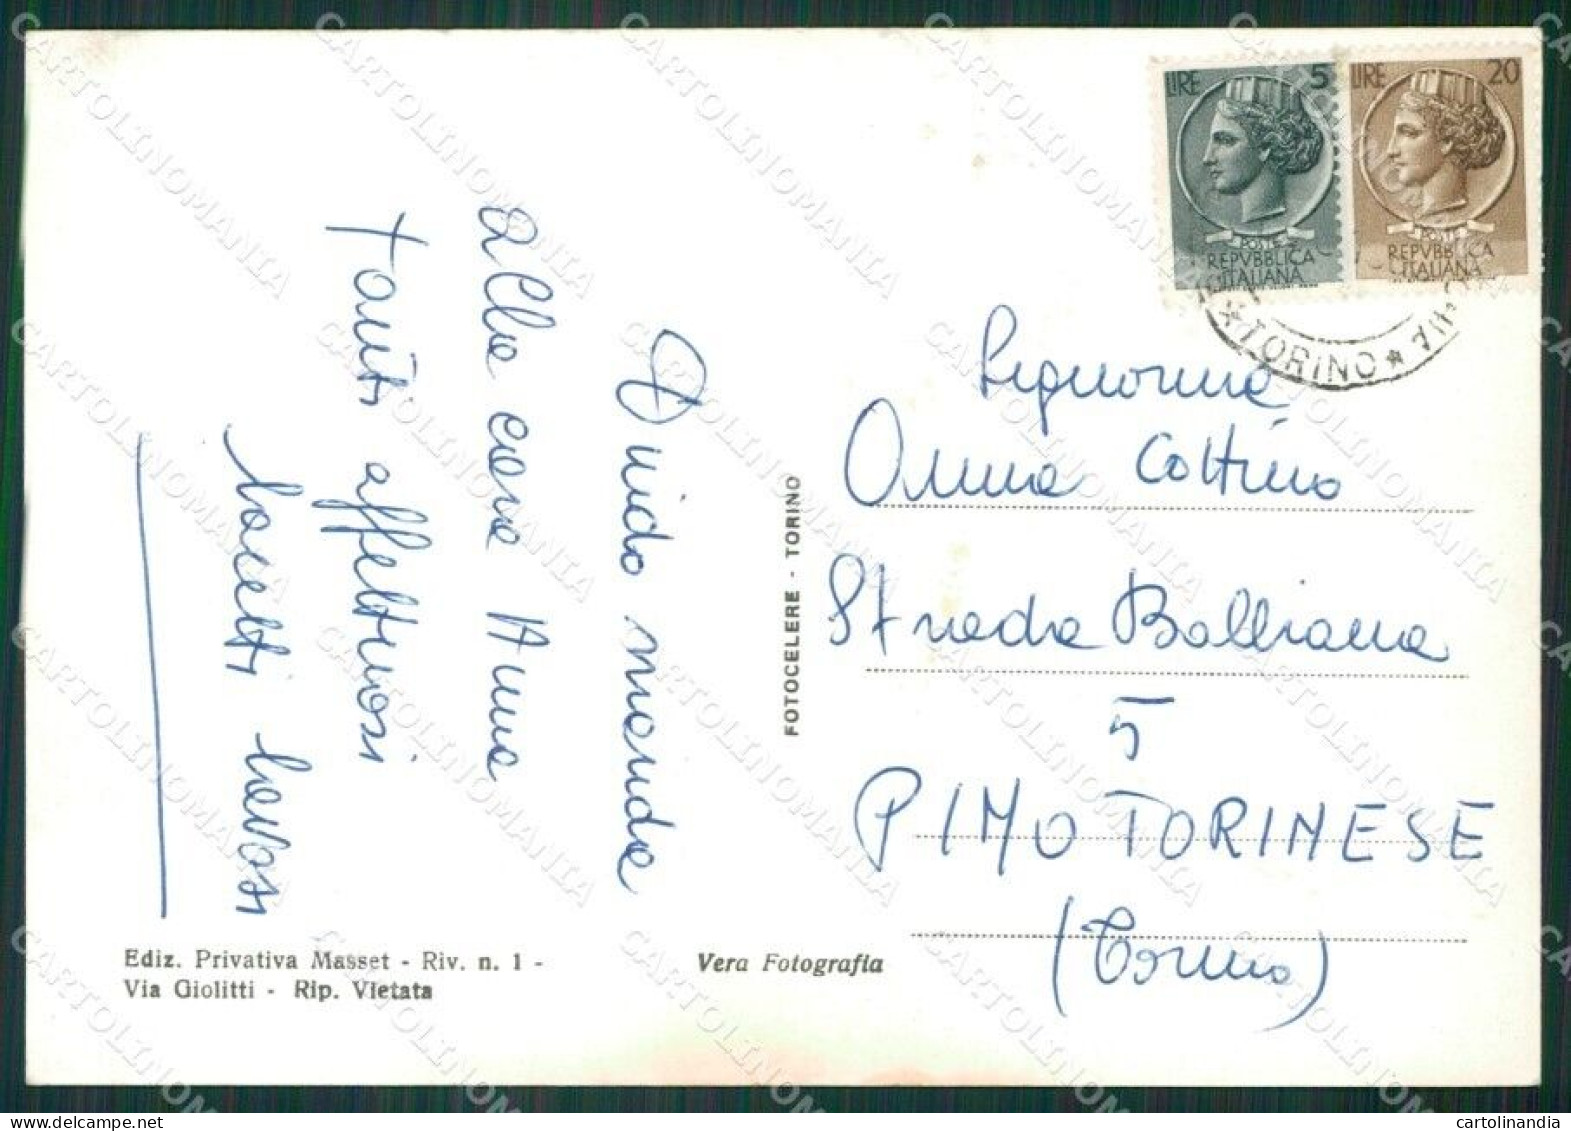 LIRE 5
LIRE 20
POSTE
REPVBBLICA
ITALIANA
POSTE
REPVBBLICA
ITALIANA
TORINO
Guido manda
alla cara Anna
tanti affettuosi
bacetti
Signorina
Anna Cottino
Strada Balbiana
5
PINO TORINESE
(Torino)
FOTOCELERE - TORINO
Ediz. Privativa Masset - Riv. n. 1 -
Via Giolitti - Rip. Vietata
Vera Fotografia
CARTOLINOMANIA
cartolinandia